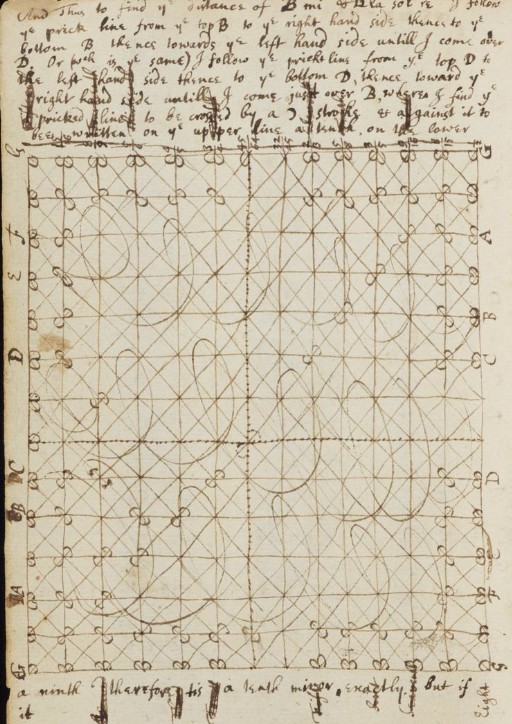 And thus to find yᵉ distance of B mi & D la sol re I follow
yᵉ prick line from yᵉ top B to yᵉ right hand side thence to yᵉ
bottom B thence towards yᵉ left hand side untill I come over
D. Or (wᶜʰ is yᵉ same) I follow yᵉ prickt line from yᵉ top D to
the left hand side thence to yᵉ bottom D, thence toward yᵉ
right hand side untill I come just over B, where I find yᵉ
pricked line to be crossed by a stroke & against it to
bee written on yᵉ upper line a tenth, on the lower
G
G
F
A
E
B
D
C
C
D
B
A
F
G
G
a ninth therefore tis a tenth minor exactly. but if
it
eight